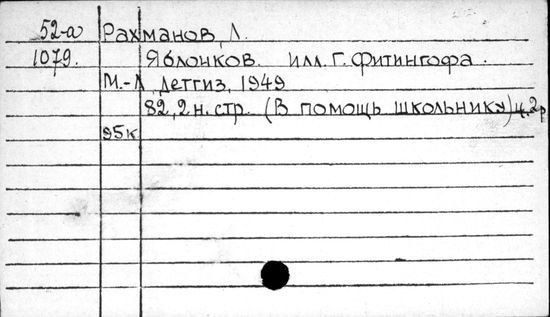 52-а Рахманов, Л.
1079. Яблочков. илл. Г. Фитингофа.
М.-Л, Детгиз, 1949
82, 2 н. стр. (В помощь школьнику) ц. 2р
95к